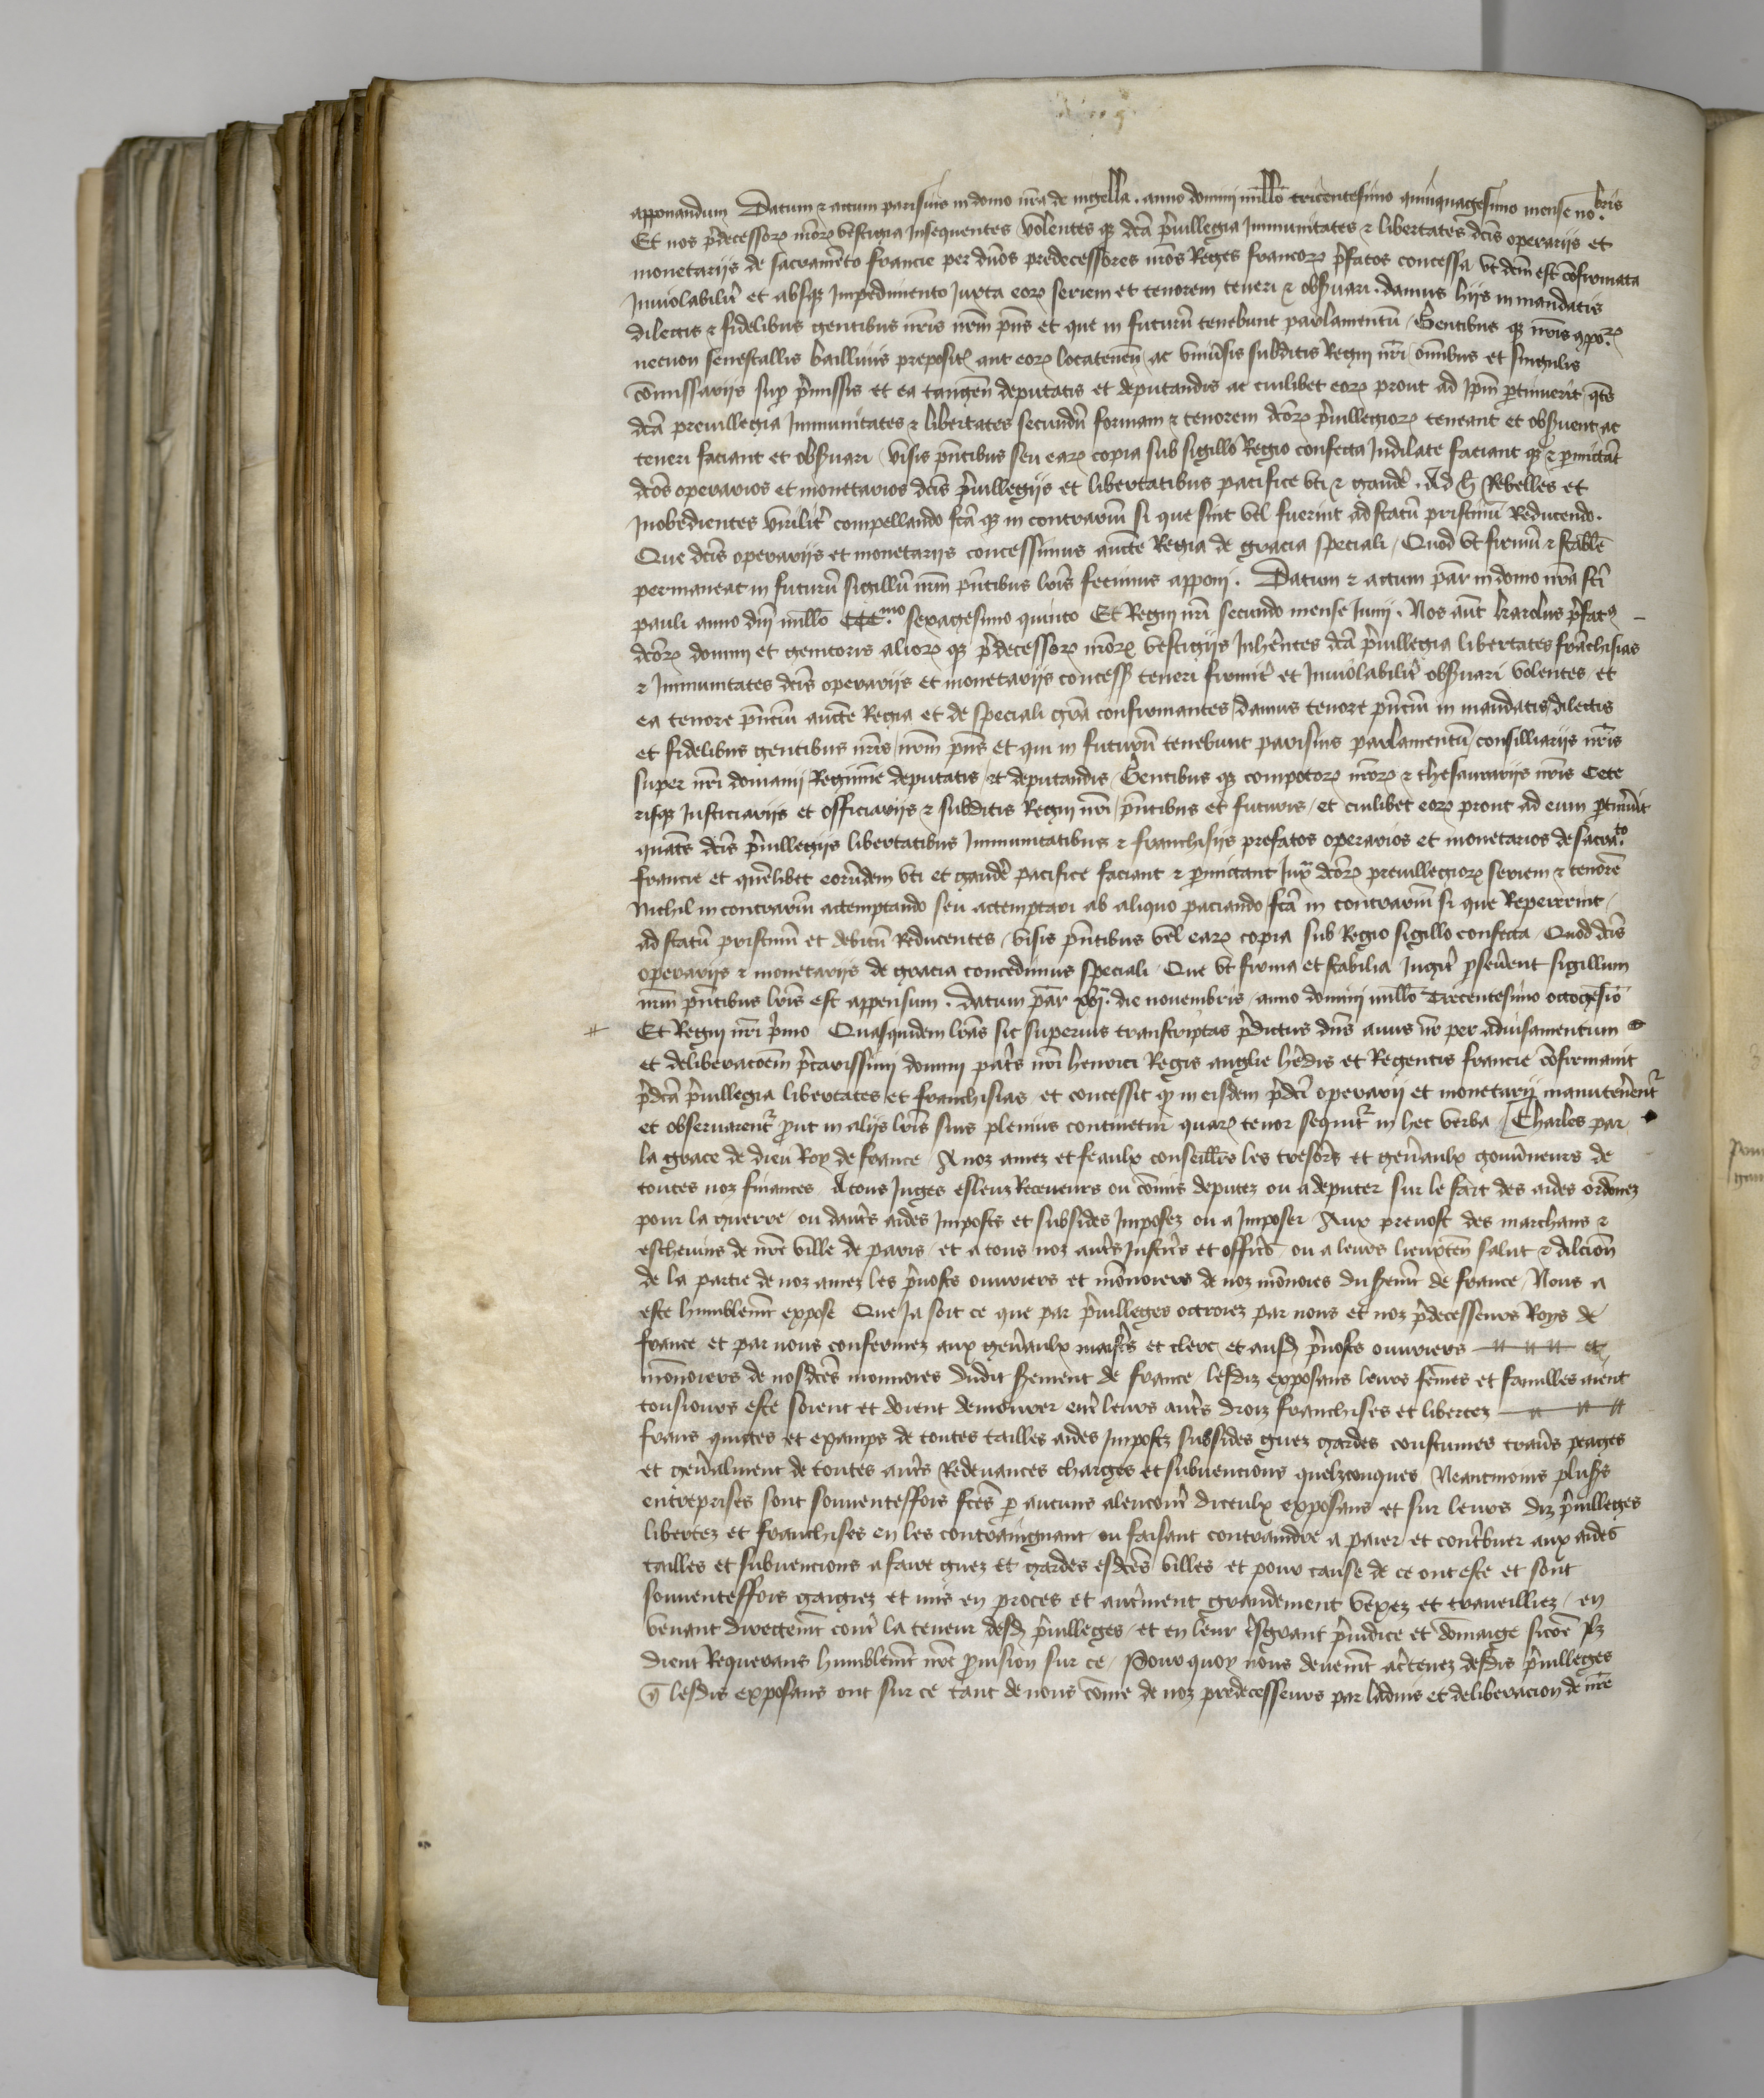 apponandum Datum ⁊ actum parisius in domo nr̄a de nigella . anno domini mill̄o tricentesimo quinquagesimo mense no.bris
Et nos p̄decessoꝝ nr̄oꝝ vestigia Insequentes volentes qꝫ dc̄a p̄uillegia Immunitates ⁊ libertates dc̄is operarijs et
monetarijs de sacramento francie per dn̄os predecessores nr̄os Reges francoꝝ p̄fatos concessa vt dcm̄ est cōfirmata
Inuiolabilit̄ et absqꝫ Impedimento Juxta eoꝝ seriem et tenorem teneri ⁊ obſuari . damus hijs in mandatis
dilectis ⁊ fidelibus gentibus nr̄is nr̄m pn̄s et que in futuru᷑ tenebunt parlamentu᷑ / Gentibus qꝫ nr̄is ꝯpo.ꝝ
necnon senescallis bailliuis preposit᷑ aut eoꝝ locatenen᷑ / ac vniu᷑sis subditis Regni nr̄i / om̄ibus et singulis
cōmissarijs suꝑ p̄missis et ea tangen᷑ deputatis et deputandis ac cuilibet eoꝝ prout ad ip̄m ꝑtinuerit qt̄s
dc̄a preuillegia Immunitates ⁊ libertates secundu᷑ formam ⁊ tenorem dc̄oꝝ p̄uillegioꝝ teneant et obſuent ac
teneri faciant et obſuari / visis pn̄tibus seu eaꝝ copia sub sigillo Regio confecta Indilate faciant qꝫ ⁊ ꝑmictāt
dc̄os operarios et monetarios dc̄is p̄uillegijs et libertatibus pacifice vti ⁊ gaude᷑ . Ad h̄ Rebelles et
Inobedientes virilit᷑ compellando fc̄a qꝫ in contrariu᷑ si que sint vel fuerint ad statu᷑ pristinu᷑ Reducendo .
Que dc̄is operarijs et monetarijs concessimus auct̄e Regia de gracia speciali / Quod vt firmu᷑ ⁊ stabile᷑
permaneat in futuru᷑ sigillu᷑ nr̄m pn̄tibus lr̄is fecimus apponi . Datum ⁊ actum par᷑ in domo nr̄a sc̄i
pauli anno dn̄i mill̄o CCC.mo sexagesimo quinto Et Regni nr̄i secundo mense Junij . Nos aut᷑ karolus p̄fatꝰ –
dc̄oꝝ domini et genitoris alioꝝ qꝫ p̄decessoꝝ nr̄oꝝ vestigijs Inherentes dc̄a p̄uillegia libertates frāchisias
⁊ Immunitates dc̄is operarijs et monetarijs concess᷑ teneri firmit᷑ et Inuiolabilit᷑ obſuari volentes / et
ea tenore pn̄ciu᷑ auct̄e Regia et de speciali gr̄a confirmantes / damus tenore pn̄ciu᷑ in mandatis / dilectis
et fidelibus gentibus nr̄is / nr̄m pn̄s et qui in futuru᷑ tenebunt parisius parlamentu᷑ / consilliarijs nr̄is
super nr̄i domanij Regimie᷑ deputatis / et deputandis / Gentibus qꝫ compotoꝝ nr̄oꝝ ⁊ thesaurarijs nr̄is Cete
risqꝫ Justiciarijs et officiarijs ⁊ subditis Regni nr̄i / pn̄tibus et futuris / et cuilibet eoꝝ prout ad eum ꝑtinuit᷑
quat̄s dc̄is p̄uillegijs libertatibus Immunitatibus ⁊ franchisijs prefatos operarios et monetarios de sacra.to
francie et que᷑libet eoru᷑dem vti et gaude᷑ pacifice faciant ⁊ ꝑmictant Jux᷑ dc̄oꝝ preuillegioꝝ seriem ⁊ tenore᷑
Nichil in contrariu᷑ actemptando seu actemptari ab aliquo paciando / fc̄a in contrariu᷑ si que Reperierint /
ad statu᷑ pristinu᷑ et debitu᷑ Reducentes / visis pn̄tibus vel eaꝝ copia sub Regio sigillo confecta / Quod dc̄is
operarijs ⁊ monetarijs de gracia concedimus speciali / Que vt firma et stabilia Jugit᷑ ꝑseue᷑nt sigillum
nr̄m pn̄tibus lr̄is est appensum . Datum par᷑ xvij.ª die nouembris / anno domini mill̄o Trecentesimo octogesio᷑
Et Regni nr̄i p̄mo Quasquidem lr̄as sic superius transcriptas p̄dictus dn̄s auus nr̄ per aduisamentum
et deliberacoe᷑m p̄carissimi domini pat᷑s nr̄i henrici Regis anglie he᷑dis et Regentis francie cōfirmauit
p̄dc̄a p̄uillegia libertates et franchisias / et concessit qꝫ in eisdem p̄dc̄i operarij et monetarij manutene᷑nt᷑
et obseruarent᷑ ꝓut in alijs lr̄is suis plenius continetur quaꝝ tenor sequit᷑ in hec verba / Charles par
la grace de dieu Roy de france / A noz amez et feaulx conseill̄rs les tresor̄s et gen̄aulx gouu᷑neurs de
toutes noz finances / A tous Juges esleuz Receueurs ou cōmis deputez ou a deputer sur le fait des aides ordōnez
pour la guerre / ou daut᷑s aides Imposts et subsides Imposez ou a Imposer / Aux preuost des marchans ⁊
escheuins de nr̄e ville de paris / et a tous noz aut᷑s Justic᷑s et offic᷑s / ou a leurs lieuxten᷑ salut ⁊ dilcion᷑
de la partie de noz amez les p̄uosts ouuriers et mōnoiers de noz mōnoies du ſem̄t de france / Nous a
este humblem̄t expose Que Ja soit ce que par p̄uilleges octroiez par nous et noz p̄decesseurs Roys de
france et par nous confermez aux gen̄aulx maist᷑s et clerc / et ausd᷑ p̄uosts ouuriers et
mōnoiers de nosdc̄es monnoies dudit ſement de france / lesdiz exposans leurs fem̄es et familles aient
tousiours este soient et doient demourer ent᷑ leurs aut᷑s droiz franchises et libertez
frans quictes et examps de toutes tailles aides Impostz subsides guez gardes coustumes trau᷑s peages
et gen̄alment de toutes aut᷑s Redeuances charges et subuencions quelzconques / Neantmoins plus᷑s
entreprises sont souuenteffois fc̄es ꝑ aucuns alencont᷑ diceulx exposans et sur leurs diz p̄uilleges
libertez et franchises en les contraingnant ou faisant contraindre a paier et cont᷑buer aux aides
tailles et subuencions a faire guez et gardes esdc̄es villes / et pour cause de ce ont este et sont
souuenteffois gaigiez et mis en proces et aut᷑ment grandement vexez et trauailliez / en
venant directem̄t cont᷑ la teneur desd᷑ p̄uilleges / et en leur t᷑sgrant p̄iudice et dōmaige sicōe ilz
dient Requerans humblem̄t nr̄e ꝓuision sur ce / Pour quoy nous deuem̄t ac᷑tenez desdis p̄uilleges
q̄ lesdis exposans ont sur ce tant de nous cōme de noz predecesseurs par laduis et deliberacion de nr̄e